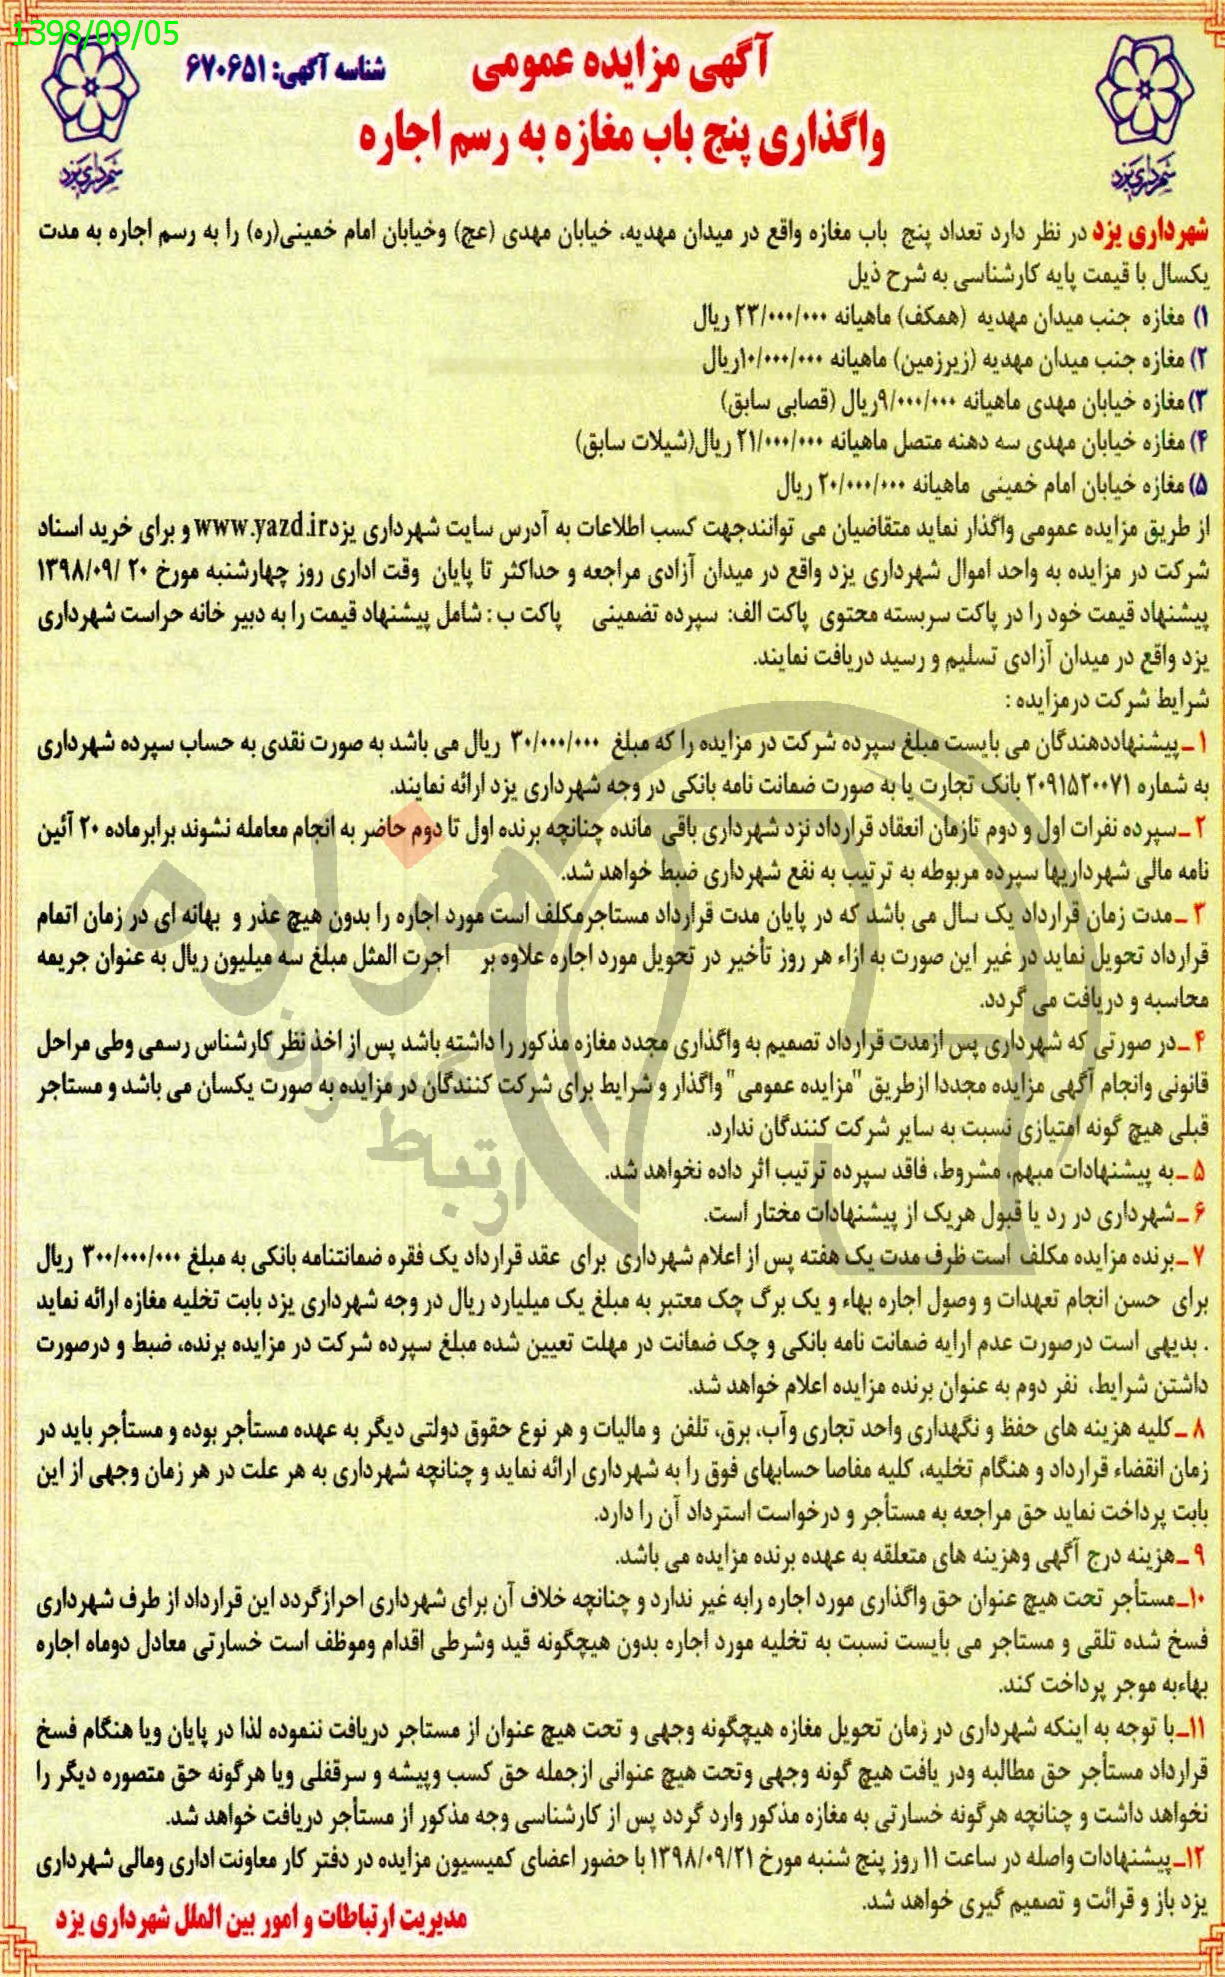 1398/09/05
شناسه آگهی: ۶۷۰۶۵۱
آگهی مزایده عمومی
واگذاری پنج باب مغازه به رسم اجاره
شهرداری یزد
شهرداری یزد
شهرداری یزد در نظر دارد تعداد پنج باب مغازه واقع در میدان مهدیه، خیابان مهدی (عج) وخیابان امام خمینی(ره) را به رسم اجاره به مدت
یکسال با قیمت پایه کارشناسی به شرح ذیل
۱) مغازه جنب میدان مهدیه (همکف) ماهیانه ۲۳/۰۰۰/۰۰۰ ریال
۲) مغازه جنب میدان مهدیه (زیرزمین) ماهیانه ۱۰/۰۰۰/۰۰۰ریال
۳) مغازه خیابان مهدی ماهیانه ۹/۰۰۰/۰۰۰ریال (قصابی سابق)
۴) مغازه خیابان مهدی سه دهنه متصل ماهیانه ۲۱/۰۰۰/۰۰۰ ریال(شیلات سابق)
۵) مغازه خیابان امام خمینی ماهیانه ۲۰/۰۰۰/۰۰۰ ریال
از طریق مزایده عمومی واگذار نماید متقاضیان می توانندجهت کسب اطلاعات به آدرس سایت شهرداری یزدwww.yazd.ir و برای خرید اسناد
شرکت در مزایده به واحد اموال شهرداری یزد واقع در میدان آزادی مراجعه و حداکثر تا پایان وقت اداری روز چهارشنبه مورخ ۲۰ /۱۳۹۸/۰۹
پیشنهاد قیمت خود را در پاکت سربسته محتوی پاکت الف: سپرده تضمینی پاکت ب : شامل پیشنهاد قیمت را به دبیر خانه حراست شهرداری
یزد واقع در میدان آزادی تسلیم و رسید دریافت نمایند.
شرایط شرکت درمزایده :
۱ ـ پیشنهاددهندگان می بایست مبلغ سپرده شرکت در مزایده را که مبلغ ۳۰/۰۰۰/۰۰۰ ریال می باشد به صورت نقدی به حساب سپرده شهرداری
به شماره ۲۰۹۱۵۲۰۰۷۱ بانک تجارت یا به صورت ضمانت نامه بانکی در وجه شهرداری یزد ارائه نمایند.
۲ ـسپرده نفرات اول و دوم تازمان انعقاد قرارداد نزد شهرداری باقی مانده چنانچه برنده اول تا دوم حاضر به انجام معامله نشوند برابرماده ۲۰ آئین
نامه مالی شهرداریها سپرده مربوطه به ترتیب به نفع شهرداری ضبط خواهد شد.
۳ ـمدت زمان قرارداد یک سال می باشد که در پایان مدت قرارداد مستاجرمکلف است مورد اجاره را بدون هیچ عذر و بهانه ای در زمان اتمام
قرارداد تحویل نماید در غیر این صورت به ازاء هر روز تأخیر در تحویل مورد اجاره علاوه بر اجرت المثل مبلغ سه میلیون ریال به عنوان جریمه
محاسبه و دریافت می گردد.
۴ ـدر صورتی که شهرداری پس ازمدت قرارداد تصمیم به واگذاری مجدد مغازه مذکور را داشته باشد پس از اخذ نظر کارشناس رسمی وطی مراحل
قانونی وانجام آگهی مزایده مجددا ازطریق "مزایده عمومی" واگذار و شرایط برای شرکت کنندگان در مزایده به صورت یکسان می باشد و مستاجر
قبلی هیچ گونه امتیازی نسبت به سایر شرکت کنندگان ندارد.
۵ ـبه پیشنهادات مبهم، مشروط، فاقد سپرده ترتیب اثر داده نخواهد شد.
۶ ـشهرداری در رد یا قبول هریک از پیشنهادات مختار است.
۷ ـبرنده مزایده مکلف است ظرف مدت یک هفته پس از اعلام شهرداری برای عقد قرارداد یک فقره ضمانتنامه بانکی به مبلغ ۳۰۰/۰۰۰/۰۰۰ ریال
برای حسن انجام تعهدات و وصول اجاره بهاء و یک برگ چک معتبر به مبلغ یک میلیارد ریال در وجه شهرداری یزد بابت تخلیه مغازه ارائه نماید
. بدیهی است درصورت عدم ارایه ضمانت نامه بانکی و چک ضمانت در مهلت تعیین شده مبلغ سپرده شرکت در مزایده برنده، ضبط و درصورت
داشتن شرایط، نفر دوم به عنوان برنده مزایده اعلام خواهد شد.
۸ ـکلیه هزینه های حفظ و نگهداری واحد تجاری وآب، برق، تلفن و مالیات و هر نوع حقوق دولتی دیگر به عهده مستأجر بوده و مستأجر باید در
زمان انقضاء قرارداد و هنگام تخلیه، کلیه مفاصا حسابهای فوق را به شهرداری ارائه نماید و چنانچه شهرداری به هر علت در هر زمان وجهی از این
بابت پرداخت نماید حق مراجعه به مستأجر و درخواست استرداد آن را دارد.
۹ ـهزینه درج آگهی وهزینه های متعلقه به عهده برنده مزایده می باشد.
۱۰ـمستأجر تحت هیچ عنوان حق واگذاری مورد اجاره رابه غیر ندارد و چنانچه خلاف آن برای شهرداری احرازگردد این قرارداد از طرف شهرداری
فسخ شده تلقی و مستاجر می بایست نسبت به تخلیه مورد اجاره بدون هیچگونه قید وشرطی اقدام وموظف است خسارتی معادل دوماه اجاره
بهاءبه موجر پرداخت کند.
۱۱ـبا توجه به اینکه شهرداری در زمان تحویل مغازه هیچگونه وجهی و تحت هیچ عنوان از مستاجر دریافت ننموده لذا در پایان ویا هنگام فسخ
قرارداد مستأجر حق مطالبه ودر یافت هیچ گونه وجهی وتحت هیچ عنوانی ازجمله حق کسب وپیشه و سرقفلی ویا هرگونه حق متصوره دیگر را
نخواهد داشت و چنانچه هرگونه خسارتی به مغازه مذکور وارد گردد پس از کارشناسی وجه مذکور از مستأجر دریافت خواهد شد.
۱۲ـپیشنهادات واصله در ساعت ۱۱ روز پنج شنبه مورخ ۱۳۹۸/۰۹/۲۱ با حضور اعضای کمیسیون مزایده در دفتر کار معاونت اداری ومالی شهرداری
یزد باز و قرائت و تصمیم گیری خواهد شد.
مدیریت ارتباطات و امور بین الملل شهرداری یزد